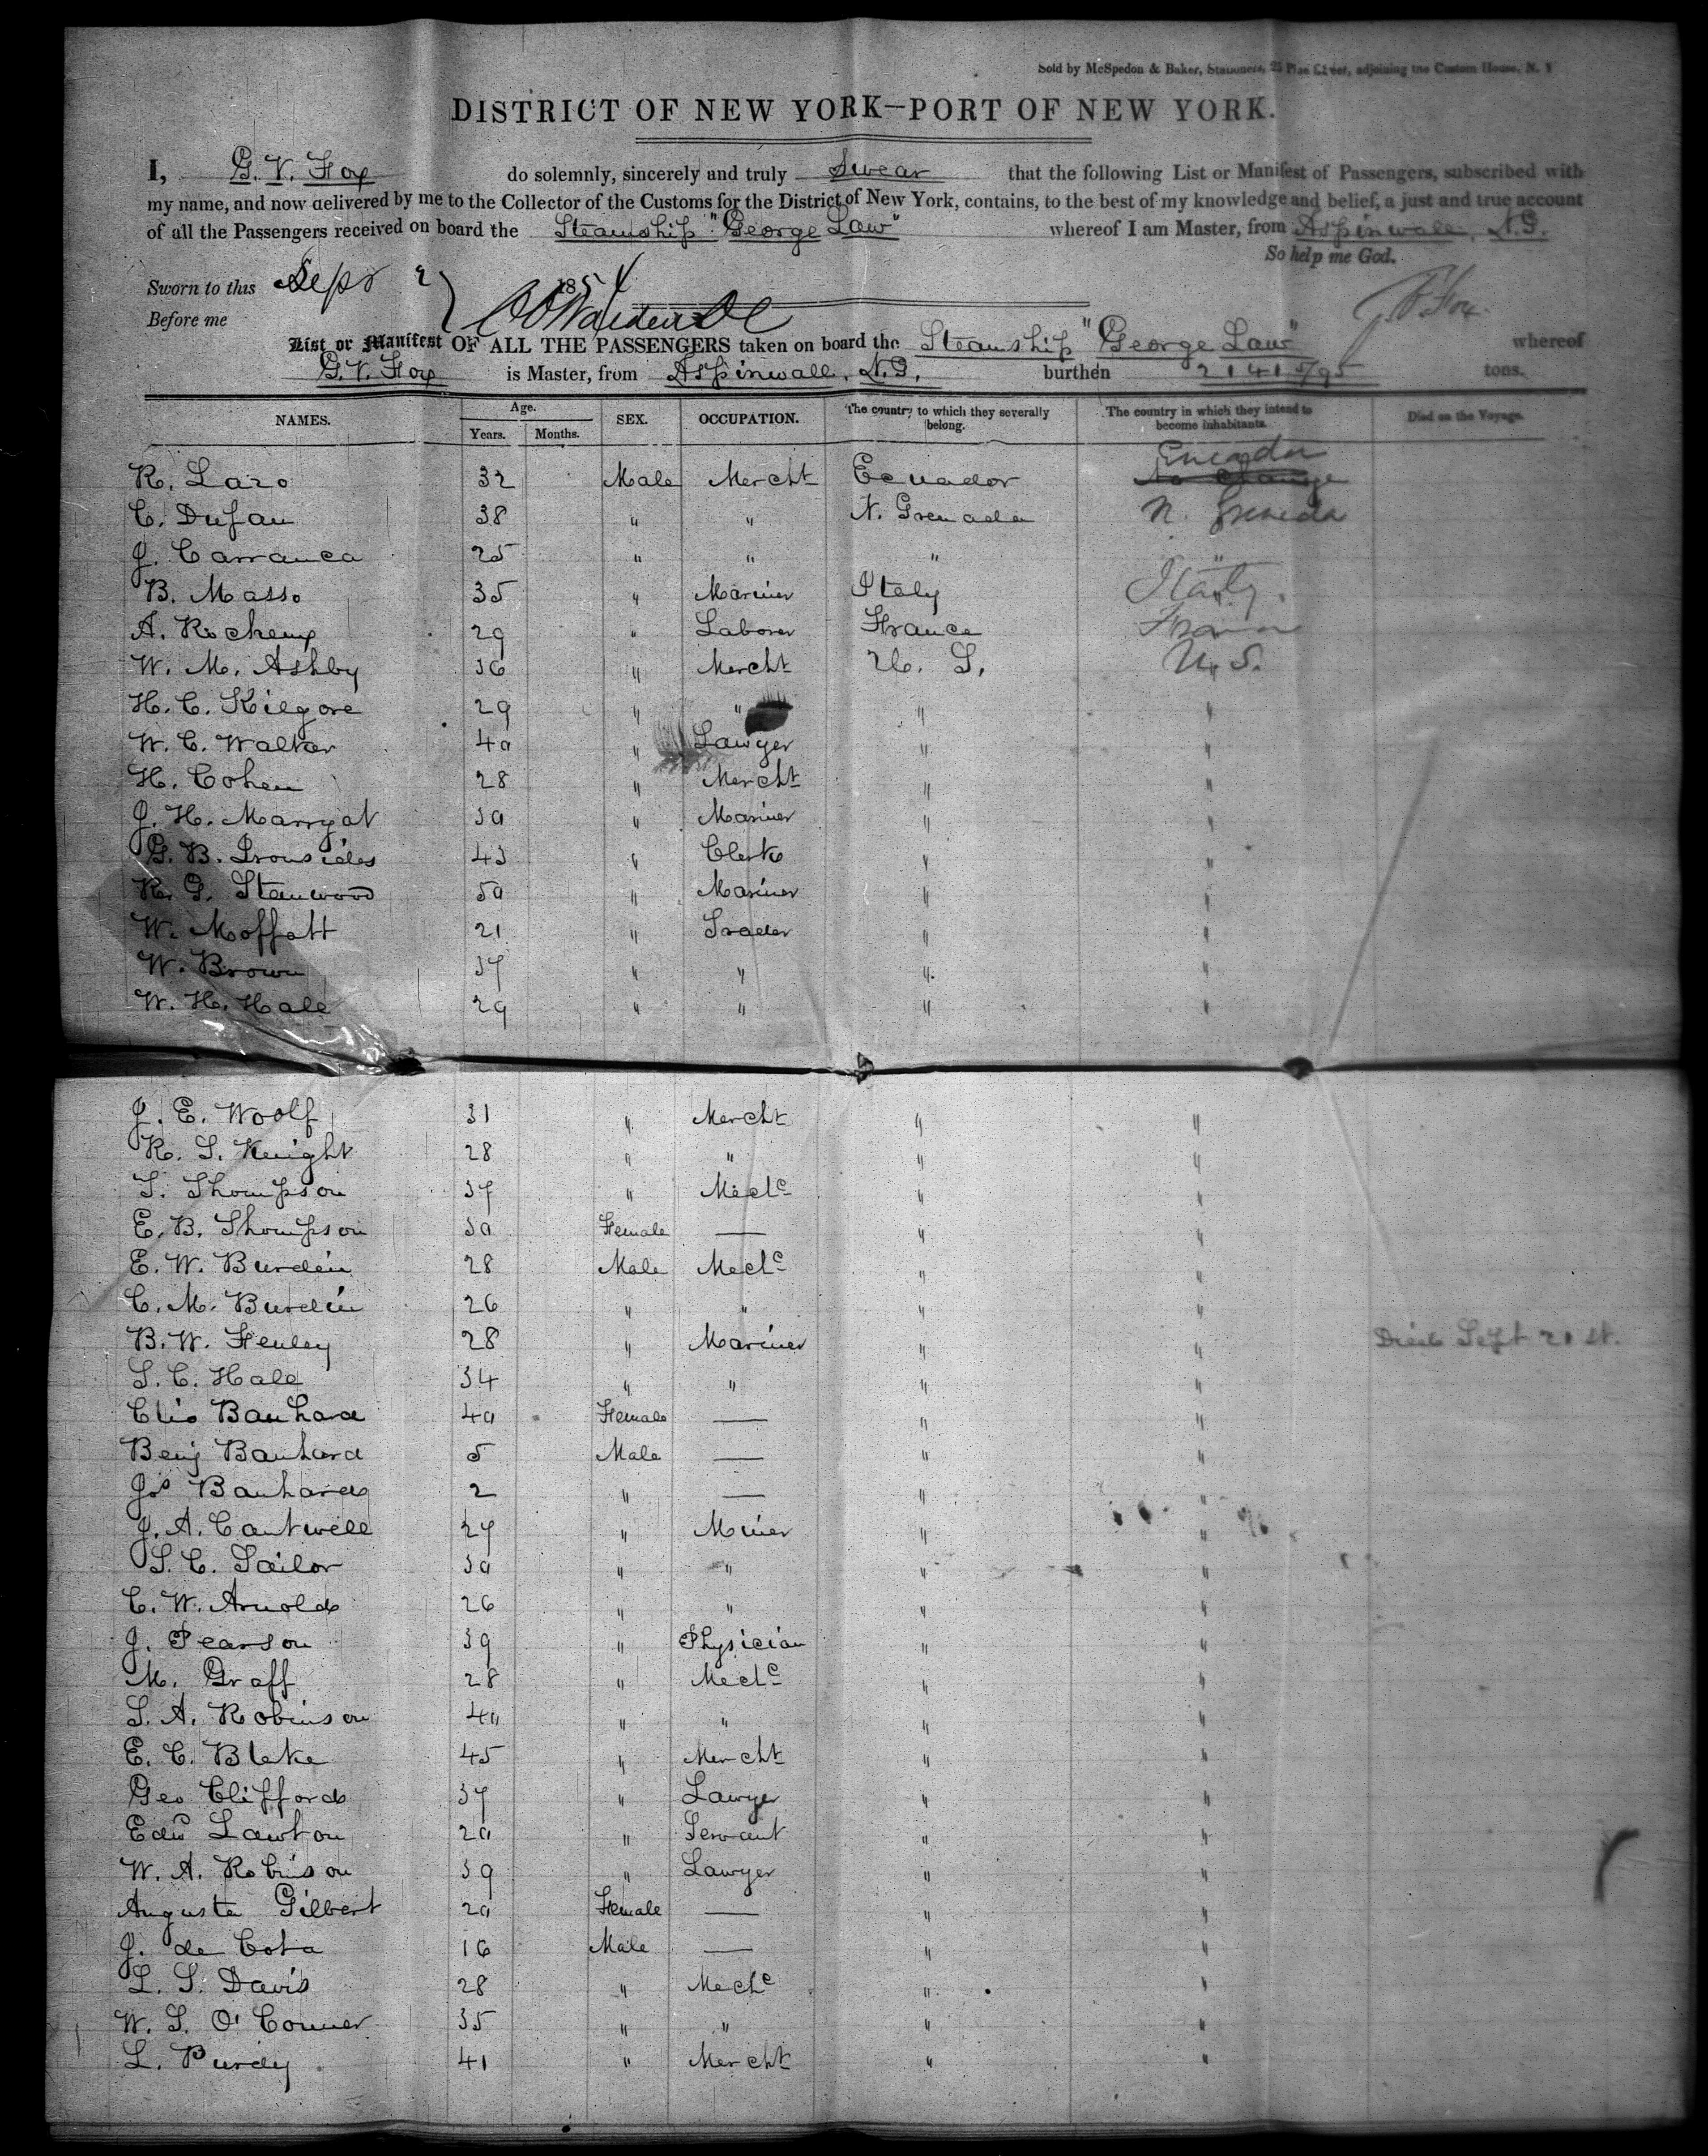 Sold by McSpedon & Baker, Stationers, 25 Pine Street, adjoining the Custom House, N. Y
DISTRICT OF NEW YORK—PORT OF NEW YORK.
I, G. V. Fox do solemnly, sincerely and truly Swear that the following List or Manifest of Passengers, subscribed with
my name, and now delivered by me to the Collector of the Customs for the District of New York, contains, to the best of my knowledge and belief, a just and true account
of all the Passengers received on board the Steamship "George Law" whereof I am Master, from Aspinwall, N.G.
So help me God.
Sworn to this Sepr 1854
Before me G.V. Fox.
List or Manifest OF ALL THE PASSENGERS taken on board the Steamship "George Law" whereof
G.V. Fox is Master, from Aspinwall, N.G. burthen 2141 5/95 tons.
NAMES. Age. Years. Months. SEX. OCCUPATION. The country to which they severally belong. The country in which they intend to become inhabitants. Died on the Voyage.
R. Lazo 32 Male Mercht Ecuador Ecuador
C. Dufau 38 " " N. Grenada N Grenada
J. Carranca 25 " " " "
B. Masso 35 " Mariner Italy Italy.
A. Rochemx 29 " Laborer France France
W. M. Ashby 36 " Mercht U. S. U. S.
H. C. Kilgore 29 " " " "
W. C. Walker 40 " Lawyer " "
H. Cohen 28 " Mercht " "
J. H. Marryat 30 " Mariner " "
G. B. Ironsides 43 " Clerk " "
R. G. Stanwood 50 " Mariner " "
W. Moffatt 21 " Trader " "
W. Brown 37 " " " "
W. H. Hale 29 " " " "
J. E. Woolf 31 " Mercht " "
R. S. Knight 28 " " " "
T. Thompson 37 " Mechc " "
E. B. Thompson 30 Female — " "
E. W. Burdin 28 Male Mechc " "
C. M. Burdin 26 " " " "
B. W. Fenley 28 " Mariner " " Died Sept 21st.
S. C. Hale 34 " " " "
Clis Banhard 40 Female — " "
Benj Banhard 5 Male — " "
Jos Banhard 2 " — " "
J. A. Cantwell 27 " Miner " "
S. C. Sailor 30 " " " "
C. W. Arnold 26 " " " "
J. Pearson 39 " Physician " "
M. Graff 28 " Mechc " "
S. A. Robinson 40 " " " "
E. C. Blake 45 " Mercht " "
Geo Clifford 37 " Lawyer " "
Edw Lawton 20 " Servant " "
W. A. Robinson 39 " Lawyer " "
Augusta Gilbert 20 Female — " "
J. de Cota 16 Male — " "
L. S. Davis 28 " Mechc " "
W. S. O'Conner 35 " " " "
L. Purdy 41 " Mercht " "